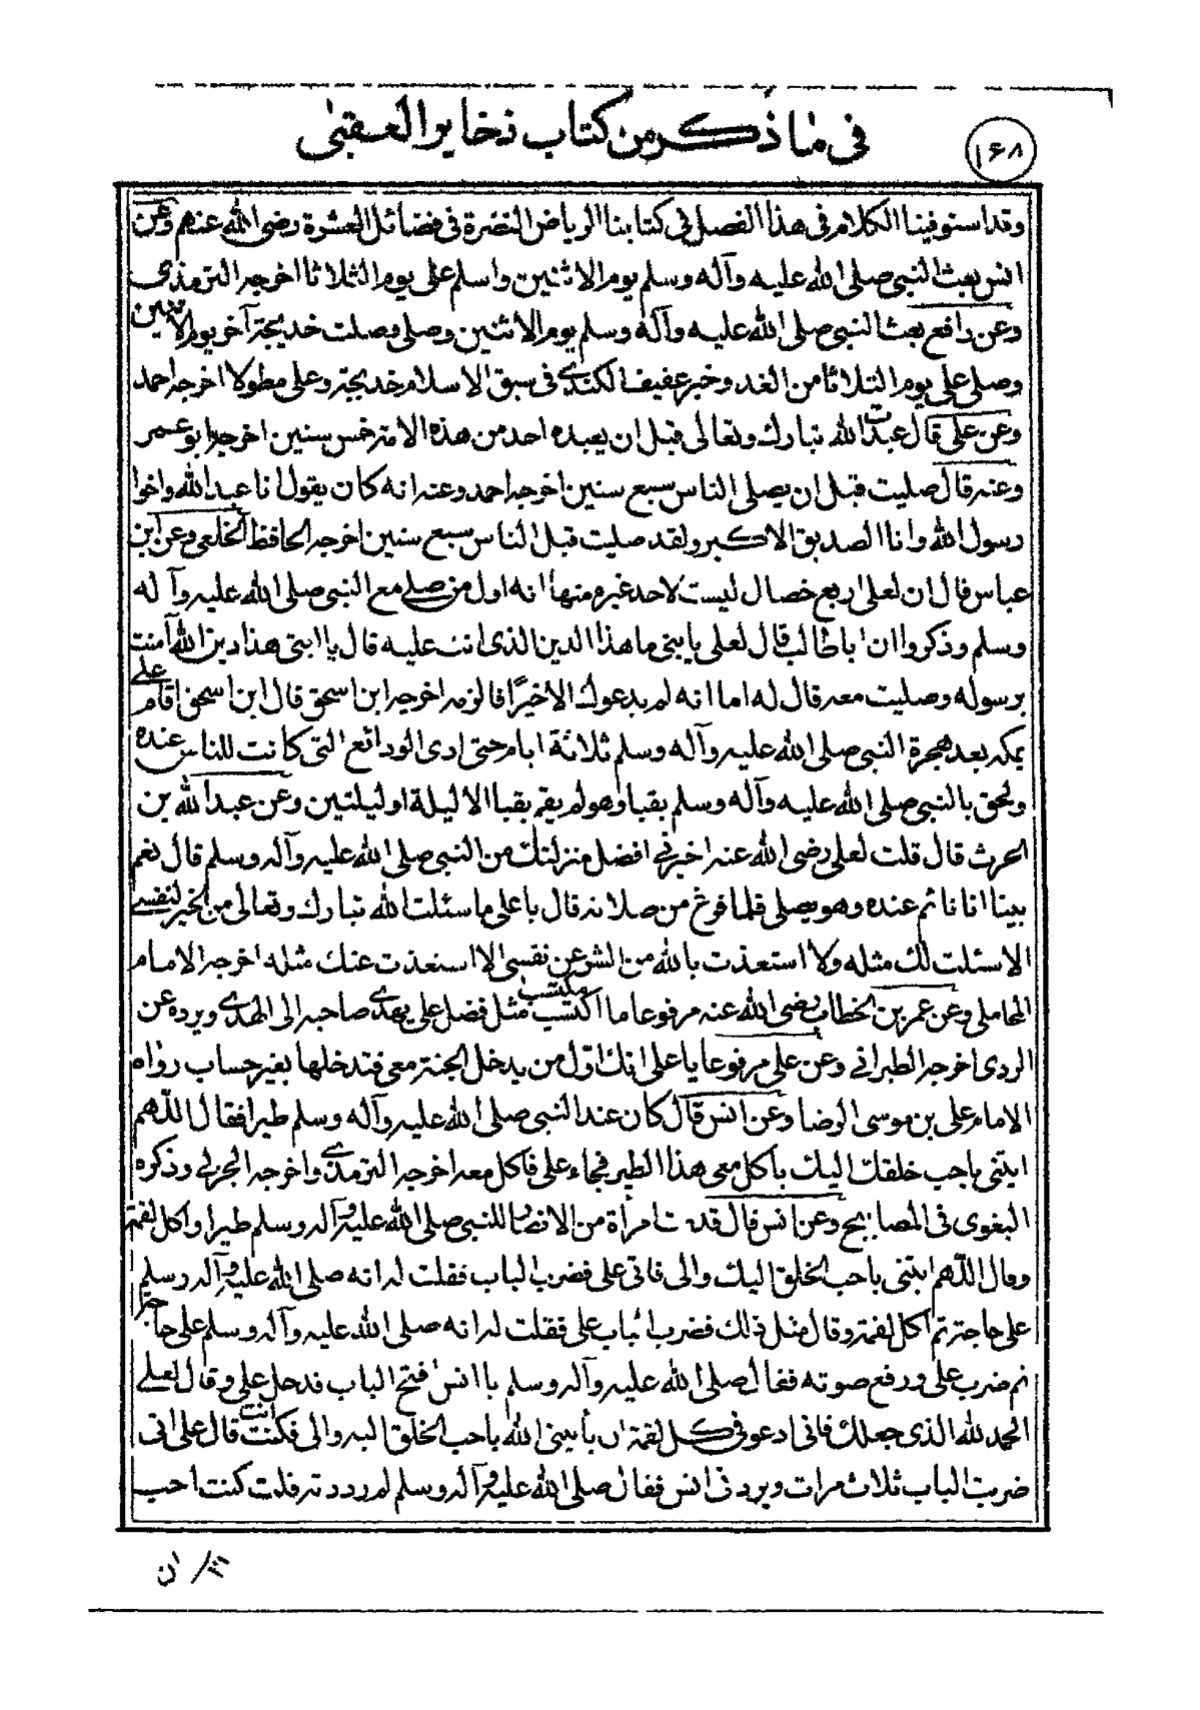 في ما ذكر من كتاب ذخاير العقبى
١٦٨
وقد استوفينا الكلام في هذا الفصل في كتابنا الرياض النضرة في فضائل العشرة رضي الله عنهم وعن
انس بعث النبي صلى الله عليه وآله وسلم يوم الاثنين واسلم على يوم الثلاثا اخرجه الترمذي
وعن رافع بعث النبي صلى الله عليه وآله وسلم يوم الاثنين وصلى وصلت خديجة آخر يوم الاثنين
وصلى على يوم الثلاثا من الغد وخبر عفيف الكندي في سبق الاسلام خديجة وعلى مطولا اخرجه احمد
وعن على قال عبدت الله تبارك وتعالى قبل ان يعبده احد من هذه الامة خمس سنين اخرجه ابو عمر
وعنه قال صليت قبل ان يصلى الناس سبع سنين اخرجه احمد وعنه انه كان يقول انا عبد الله واخوا
رسول الله وانا الصديق الاكبر ولقد صليت قبل الناس سبع سنين اخرجه الحافظ الخلعي وعن ابن
عباس قال ان لعلى اربع خصال ليست لاحد غيره منها انه اول من صلى مع النبي صلى الله عليه وآله
وسلم وذكروا ان اباطالب قال لعلى يا بنى ما هذا الدين الذى انت عليه قال يا ابتى هذا دين الله آمنت
برسوله وصليت معه قال له اما انه لم يدعوك الا خيرًا فالزمه اخرجه ابن اسحق قال ابن اسحق اقام على
بمكه بعد هجرة النبي صلى الله عليه وآله وسلم ثلاثة ايام حتى ادى الودائع التى كانت للناس عنده
ولحق بالنبي صلى الله عليه وآله وسلم بقبا وهو لم يقم بقبا الا ليلة او ليلتين وعن عبد الله بن
الحرث قال قلت لعلى رضى الله عنه اخبرنى افضل منزلتك من النبي صلى الله عليه وآله وسلم قال نعم
بينا انا نائم عنده وهو يصلى فلما فرغ من صلاته قال يا على ما سئلت الله تبارك وتعالى من الخير لنفسى
الا سئلت لك مثله ولا استعذت بالله من الشر عن نفسى الا استعذت عنك مثله اخرجه الامام
المحاملى وعن عمر بن الخطاب رضى الله عنه مرفوعا ما اكتسب مكتسب مثل فضل على يهدى صاحبه الى الهدى ويرده عن
الردى اخرجه الطبرانى وعن على مرفوعا يا على انك اوّل من يدخل الجنة معى فتدخلها بغير حساب رواه
الامام على بن موسى الرضا وعن انس قال كان عند النبي صلى الله عليه وآله وسلم طير افقال اللّهم
ايتنى باحب خلقك اليك يأكل معى هذا الطير فجاء على فاكل معه اخرجه الترمذى واخرجه الحربى وذكره
البغوى في المصابيح وعن انس قال قدمت امرأة من الانصار للنبي صلى الله عليه وآله وسلم طيرا واكل لقمة
وقال اللّهم ايتنى باحب الخلق اليك والى فاتى على فضرب الباب فقلت له انه صلى الله عليه وآله وسلم
على حاجة ثم اكل لقمة وقال مثل ذلك فضرب الباب على فقلت له انه صلى الله عليه وآله وسلم على حاجة
ثم ضرب على ورفع صوته فقال صلى الله عليه وآله وسلم يا انس افتح الباب فدخل على وقال لعلى
الحمد لله الذى جعلك فانى ادعو فى كل لقمة ان يأتينى الله باحب الخلق اليه والى فكنت انت قال على انى
ضربت الباب ثلاث مرات ويردنى انس فقال صلى الله عليه وآله وسلم لم رددته قلت كنت احب